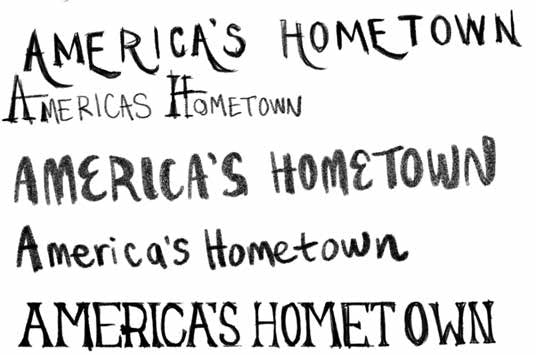 AMERICA'S HOMETOWN
AMERICAS HOMETOWN
AMERICA'S HOMETOWN
America's Hometown
AMERICA'S HOMETOWN